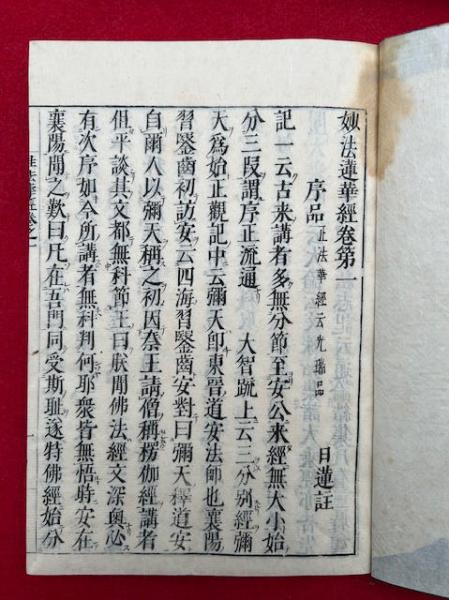 妙法蓮華經卷第一
序品 正法華經云光瑞品 日蓮註
記一云古来講者多無分節至安公来經無大小始
分三叚謂序正流通 大智䟽上云三分別經彌
天為始正觀記中云彌天即東晋道安法師也襄陽
習鑿齒初訪安云四海習鑿齒安對曰彌天釋道安
自爾人以彌天稱之初因秦王請僧稱楞伽經講者
但平談其文都無科節王曰朕聞佛法經文深奥必
有次序如今所講者無科判何耶衆皆無悟時安在
襄陽聞之歎曰凡在吾門同受斯耻遂特佛經始分